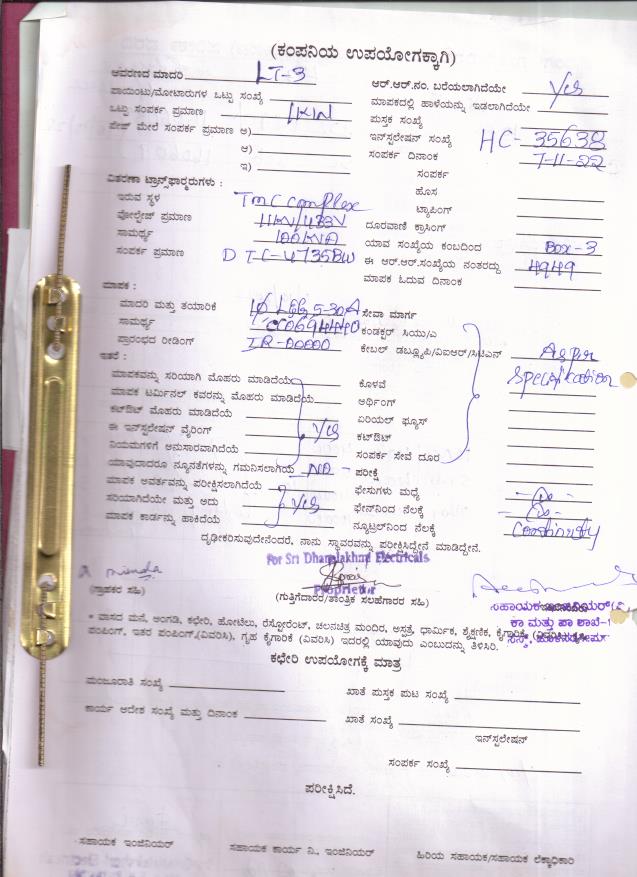 (ಕಂಪನಿಯ ಉಪಯೋಗಕ್ಕಾಗಿ)
ಆವರಣದ ಮಾದರಿ LT-3
ಆರ್.ಆರ್.ನಂ. ಬರೆಯಲಾಗಿದೆಯೇ Yes
ಪಾಯಿಂಟು/ಮೋಟಾರುಗಳ ಒಟ್ಟು ಸಂಖ್ಯೆ
ಮಾಪಕದಲ್ಲಿ ಹಾಳೆಯನ್ನು ಇಡಲಾಗಿದೆಯೇ
ಒಟ್ಟು ಸಂಪರ್ಕ ಪ್ರಮಾಣ 1KW
ಪುಸ್ತಕ ಸಂಖ್ಯೆ
ಪೇಜ್ ಮೇಲೆ ಸಂಪರ್ಕ ಪ್ರಮಾಣ ಅ)
ಇನ್‌ಸ್ಟಲೇಷನ್ ಸಂಖ್ಯೆ HC-35638
ಆ)
ಸಂಪರ್ಕ ದಿನಾಂಕ 7-11-22
ಇ)
ಸಂಪರ್ಕ
ವಿತರಣಾ ಟ್ರಾನ್ಸ್‌ಫಾರ್ಮರುಗಳು :
ಹೊಸ
ಇರುವ ಸ್ಥಳ TMC complex
ಟ್ಯಾಪಿಂಗ್
ವೋಲ್ಟೇಜ್ ಪ್ರಮಾಣ 11KV/433V
ದೂರವಾಣಿ ಕ್ರಾಸಿಂಗ್
ಸಾಮರ್ಥ್ಯ 100KVA
ಯಾವ ಸಂಖ್ಯೆಯ ಕಂಬದಿಂದ Box-3
ಸಂಪರ್ಕ ಪ್ರಮಾಣ DTC-4735BW
ಈ ಆರ್.ಆರ್.ಸಂಖ್ಯೆಯ ನಂತರದ್ದು 4949
ಮಾಪಕ ಓದುವ ದಿನಾಂಕ
ಮಾಪಕ :
ಮಾದರಿ ಮತ್ತು ತಯಾರಿಕೆ 5-30A
ಸೇವಾ ಮಾರ್ಗ
ಸಾಮರ್ಥ್ಯ
ಕಂಡಕ್ಟರ್ ಸಿಯು/ಎ
ಪ್ರಾರಂಭದ ರೀಡಿಂಗ್ IR-00000
ಕೇಬಲ್ ಡಬ್ಲ್ಯೂಪಿ/ವಿಐಆರ್/ಸಿಟಿಎಸ್ As per
Specification
ಇತರೆ :
ಮಾಪಕವನ್ನು ಸರಿಯಾಗಿ ಮೊಹರು ಮಾಡಿದೆಯೆ
ಕೊಳವೆ
ಮಾಪಕ ಟರ್ಮಿನಲ್ ಕವರನ್ನು ಮೊಹರು ಮಾಡಿದೆಯೆ
ಅರ್ಥಿಂಗ್
ಕಟ್‌ಔಟ್ ಮೊಹರು ಮಾಡಿದೆಯೆ
ಏರಿಯಲ್ ಫ್ಯೂಸ್
ಈ ಇನ್‌ಸ್ಟಲೇಷನ್ ವೈರಿಂಗ್ Yes
ಕಟ್‌ಔಟ್
ನಿಯಮಗಳಿಗೆ ಅನುಸಾರವಾಗಿದೆಯೆ
ಸಂಪರ್ಕ ಸೇವೆ ದೂರ
ಯಾವುದಾದರೂ ನ್ಯೂನತೆಗಳನ್ನು ಗಮನಿಸಲಾಗಿದೆ NO -
ಪರೀಕ್ಷೆ
ಮಾಪಕ ಅವರ್ತವನ್ನು ಪರೀಕ್ಷಿಸಲಾಗಿದೆಯೆ
ಫೇಸುಗಳು ಮಧ್ಯೆ
ಸರಿಯಾಗಿದೆಯೇ ಮತ್ತು ಅದು Yes
ಫೇಸ್‌ನಿಂದ ನೆಲಕ್ಕೆ
ಮಾಪಕ ಕಾರ್ಡನ್ನು ಹಾಕಿದೆಯೆ
ನ್ಯೂಟ್ರಲ್‌ನಿಂದ ನೆಲಕ್ಕೆ Continuity
ದೃಢೀಕರಿಸುವುದೇನೆಂದರೆ, ನಾನು ಸ್ಥಾವರವನ್ನು ಪರೀಕ್ಷಿಸಿದ್ದೇನೆ ಮಾಡಿದ್ದೇನೆ.
For Sri Dhanalakshmi Electricals
Proprietor
(ಗ್ರಾಹಕರ ಸಹಿ)
(ಗುತ್ತಿಗೆದಾರರ/ತಾಂತ್ರಿಕ ಸಲಹೆಗಾರರ ಸಹಿ)
* ವಾಸದ ಮನೆ, ಅಂಗಡಿ, ಕಛೇರಿ, ಹೋಟೆಲು, ರೆಸ್ಟೋರೆಂಟ್, ಚಲನಚಿತ್ರ ಮಂದಿರ, ಆಸ್ಪತ್ರೆ, ಧಾರ್ಮಿಕ, ಶೈಕ್ಷಣಿಕ, ಕೈಗಾರಿಕೆ
ಪಂಪಿಂಗ್, ಇತರ ಪಂಪಿಂಗ್,(ವಿವರಿಸಿ), ಗೃಹ ಕೈಗಾರಿಕೆ (ವಿವರಿಸಿ) ಇದರಲ್ಲಿ ಯಾವುದು ಎಂಬುದನ್ನು ತಿಳಿಸಿರಿ.
ಕಛೇರಿ ಉಪಯೋಗಕ್ಕೆ ಮಾತ್ರ
ಮಂಜೂರಾತಿ ಸಂಖ್ಯೆ
ಖಾತೆ ಪುಸ್ತಕ ಪುಟ ಸಂಖ್ಯೆ
ಕಾರ್ಯ ಆದೇಶ ಸಂಖ್ಯೆ ಮತ್ತು ದಿನಾಂಕ
ಖಾತೆ ಸಂಖ್ಯೆ
ಇನ್‌ಸ್ಟಲೇಷನ್
ಸಂಪರ್ಕ ಸಂಖ್ಯೆ
ಪರೀಕ್ಷಿಸಿದೆ.
ಸಹಾಯಕ ಇಂಜಿನಿಯರ್
ಸಹಾಯಕ ಕಾರ್ಯ ನಿ., ಇಂಜಿನಿಯರ್
ಹಿರಿಯ ಸಹಾಯಕ/ಸಹಾಯಕ ಲೆಕ್ಕಾಧಿಕಾರಿ